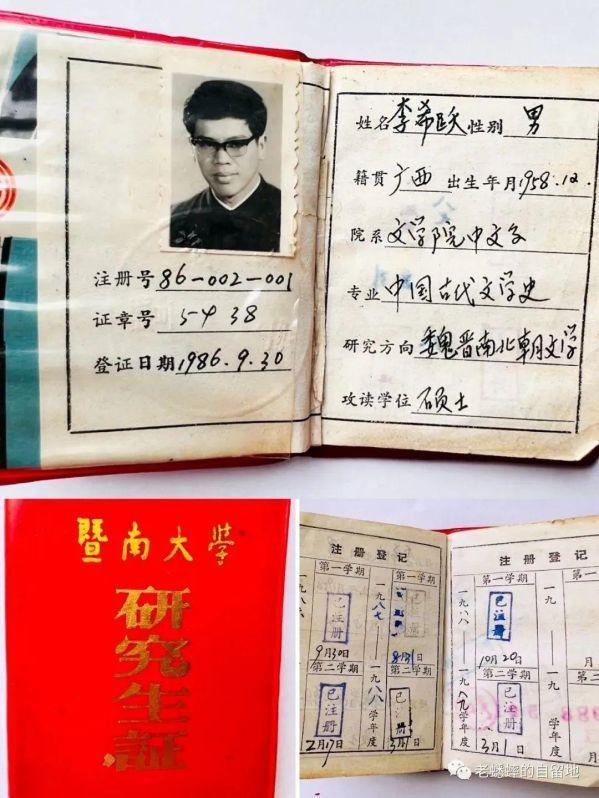 注册号86-002-001
证章号 5438
登证日期1986.9.30
姓名李希跃性别 男
籍贯广西 出生年月1958.12.
院系文学院中文系
专业中国古代文学史
研究方向魏晋南北朝文学
攻读学位 硕士
暨南大学
研究生証
注册登记
第一学期
第一学期
已注册
已注册
9月30日
8月31日
第二学期
第二学期
已注册
已注册
2月17日
3月1日
一九八七——一九八八学年度
注册登记
第一学期
已注册
10月20日
第二学期
已注册
3月1日
一九八八——一九八九学年度
一九
一九
学年度
老蟋蟀的自留地